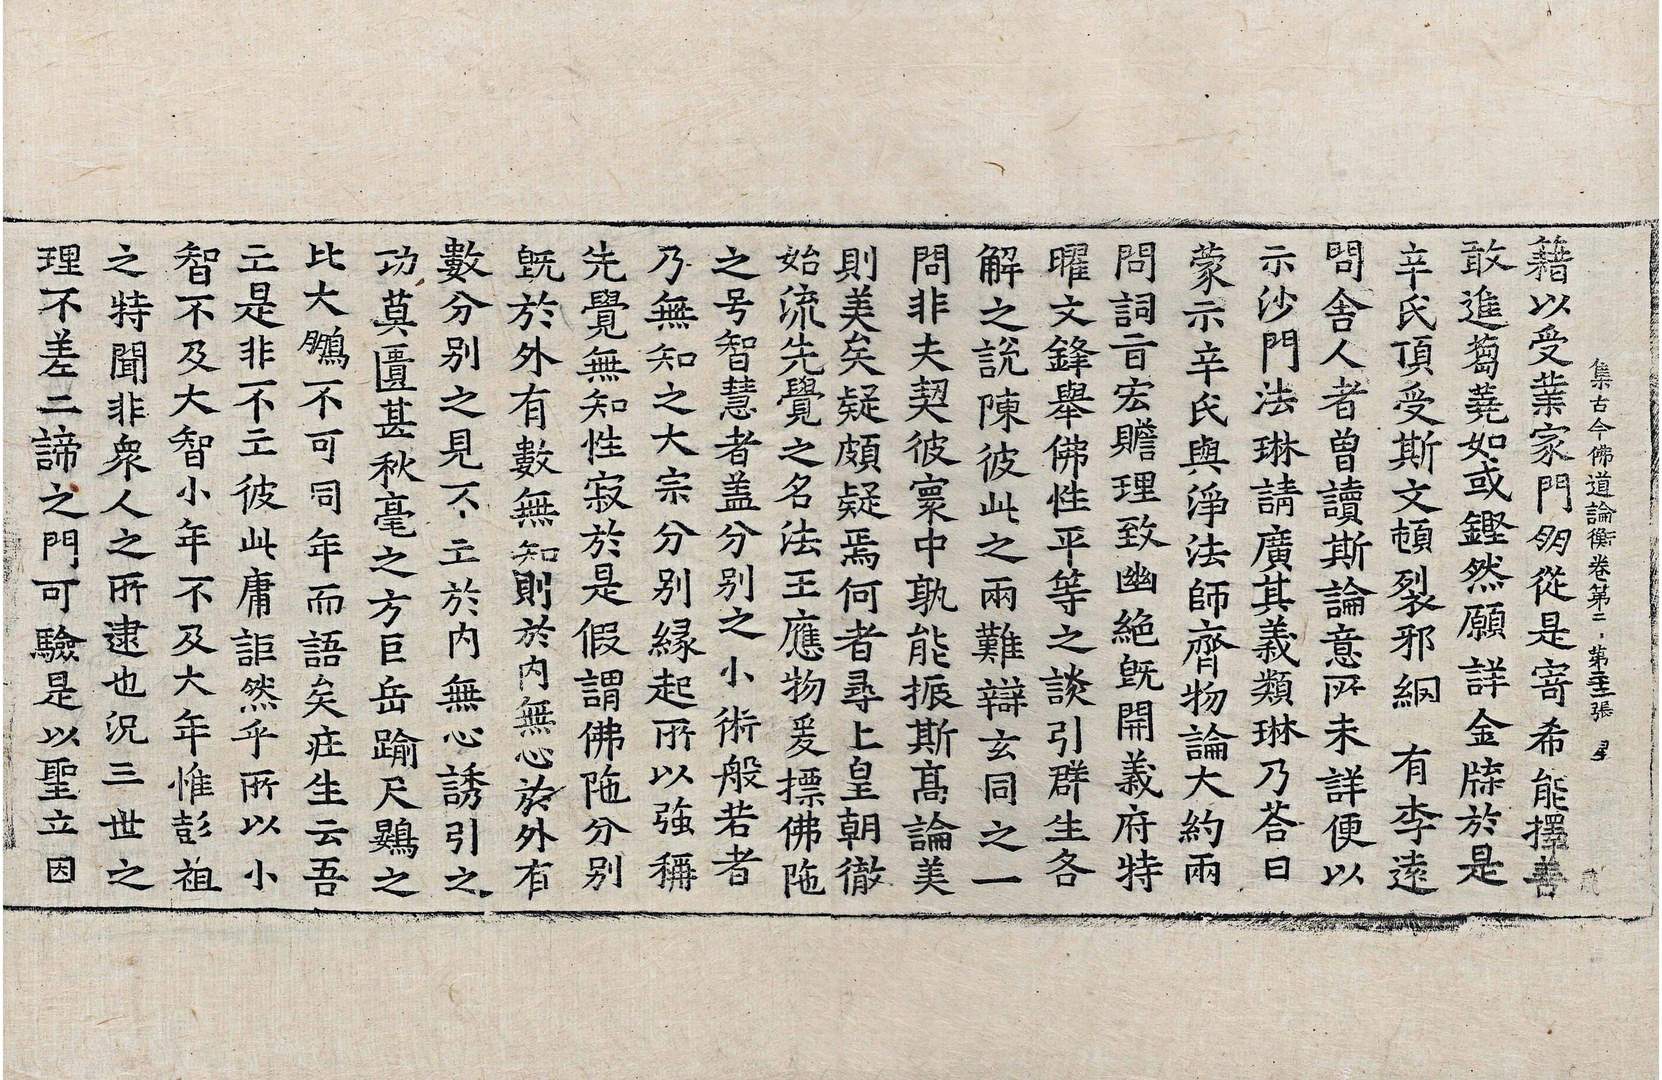 集古今佛道論衡卷第二 第三十二張 星
藉以受業家門朗從是寄希能擇善
敢進蒭蕘如或鏗然願詳金牒於是
辛氏頂受斯文頓裂邪網 有李遠
問舍人者曾讀斯論意所未詳便以
示沙門法琳請廣其義類琳乃荅曰
蒙示辛氏與淨法師齊物論大約兩
問詞旨宏贍理致幽絶旣開義府特
曜文鋒舉佛性平等之談引群生各
解之說陳彼此之兩難辯玄同之一
問非夫契彼寰中孰能振斯髙論美
則美矣疑頗疑焉何者尋上皇朝徹
始流先覺之名法王應物爰摽佛陁
之号智慧者盖分別之小術般若者
乃無知之大宗分別緣起所以強稱
先覺無知性寂於是假謂佛陁分別
旣於外有數無知則於內無心於外有
數分別之見不亡於內無心誘引之
功莫匱甚秋毫之方巨岳踰尺鷃之
比大鵬不可同年而語矣庄生云吾
亡是非不亡彼此庸詎然乎所以小
智不及大智小年不及大年惟彭祖
之特聞非衆人之所逮也況三世之
理不差二諦之門可驗是以聖立因